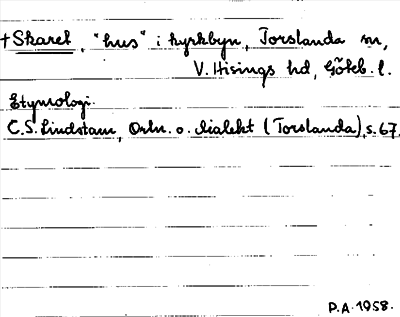 †Skaret, "hus" i kyrkbyn, Torslanda sn,
V. Hisings hd, Göteb. l.
Etymologi.
C.S. Lindstam, Ortn. o. dialekt (Torslanda), s. 67.
P.A. 1958.